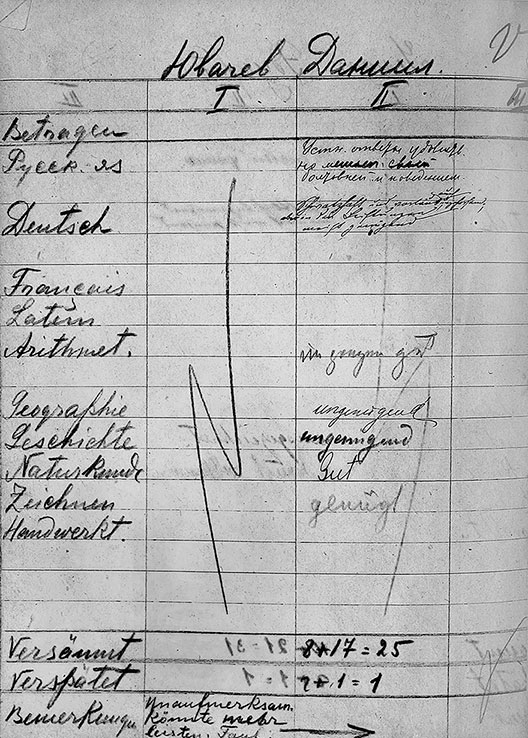 Ювачев Даниил.
I II III
Betragen
Русск. яз Устн. ответы удовлетв.
но мешает своей
болтовней и поведением
Deutsch
Français
Latein
Arithmet. im ganzen gut
Geographie ungenügend
Geschichte ungenügend
Naturkunde Gut
Zeichnen genügt
Handwerkt.
Versäumt 8+17=25
Verspätet 1=1
Bemerkungen unaufmerksam.
könnte mehr
leisten. Faul.